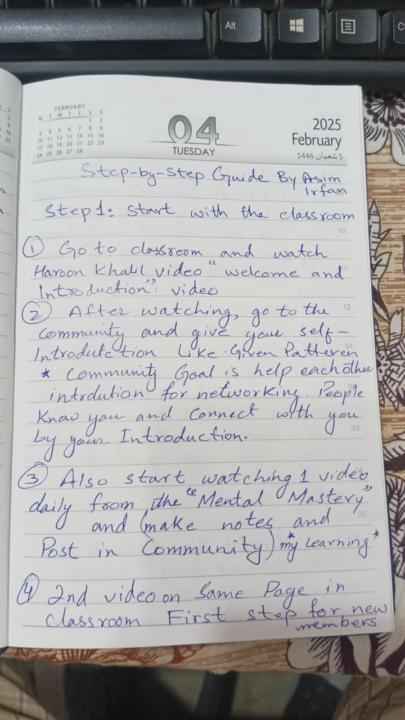 Alt
FEBRUARY
M T W T F S S
1 2
3 4 5 6 7 8 9
10 11 12 13 14 15 16
17 18 19 20 21 22 23
24 25 26 27 28
04
TUESDAY
2025
February
5 شعبان 1446
Step-by-Step Guide By Asim
Irfan
Step 1: Start with the classroom
10
① Go to classroom and watch
Haroon Khalil video "welcome and
Introduction" video
12
② After watching, go to the
community and give your self-
Introdutction Like Given Patteren
* Community Goal is help each other
intrdution for networking. People
Know you and connect with you
03
by your Introduction.
③ Also start watching 1 video
daily from the "Mental Mastery"
and (make notes and
Post in Community) *my Learning*
④ 2nd video on Same Page in
classroom First step for new
members